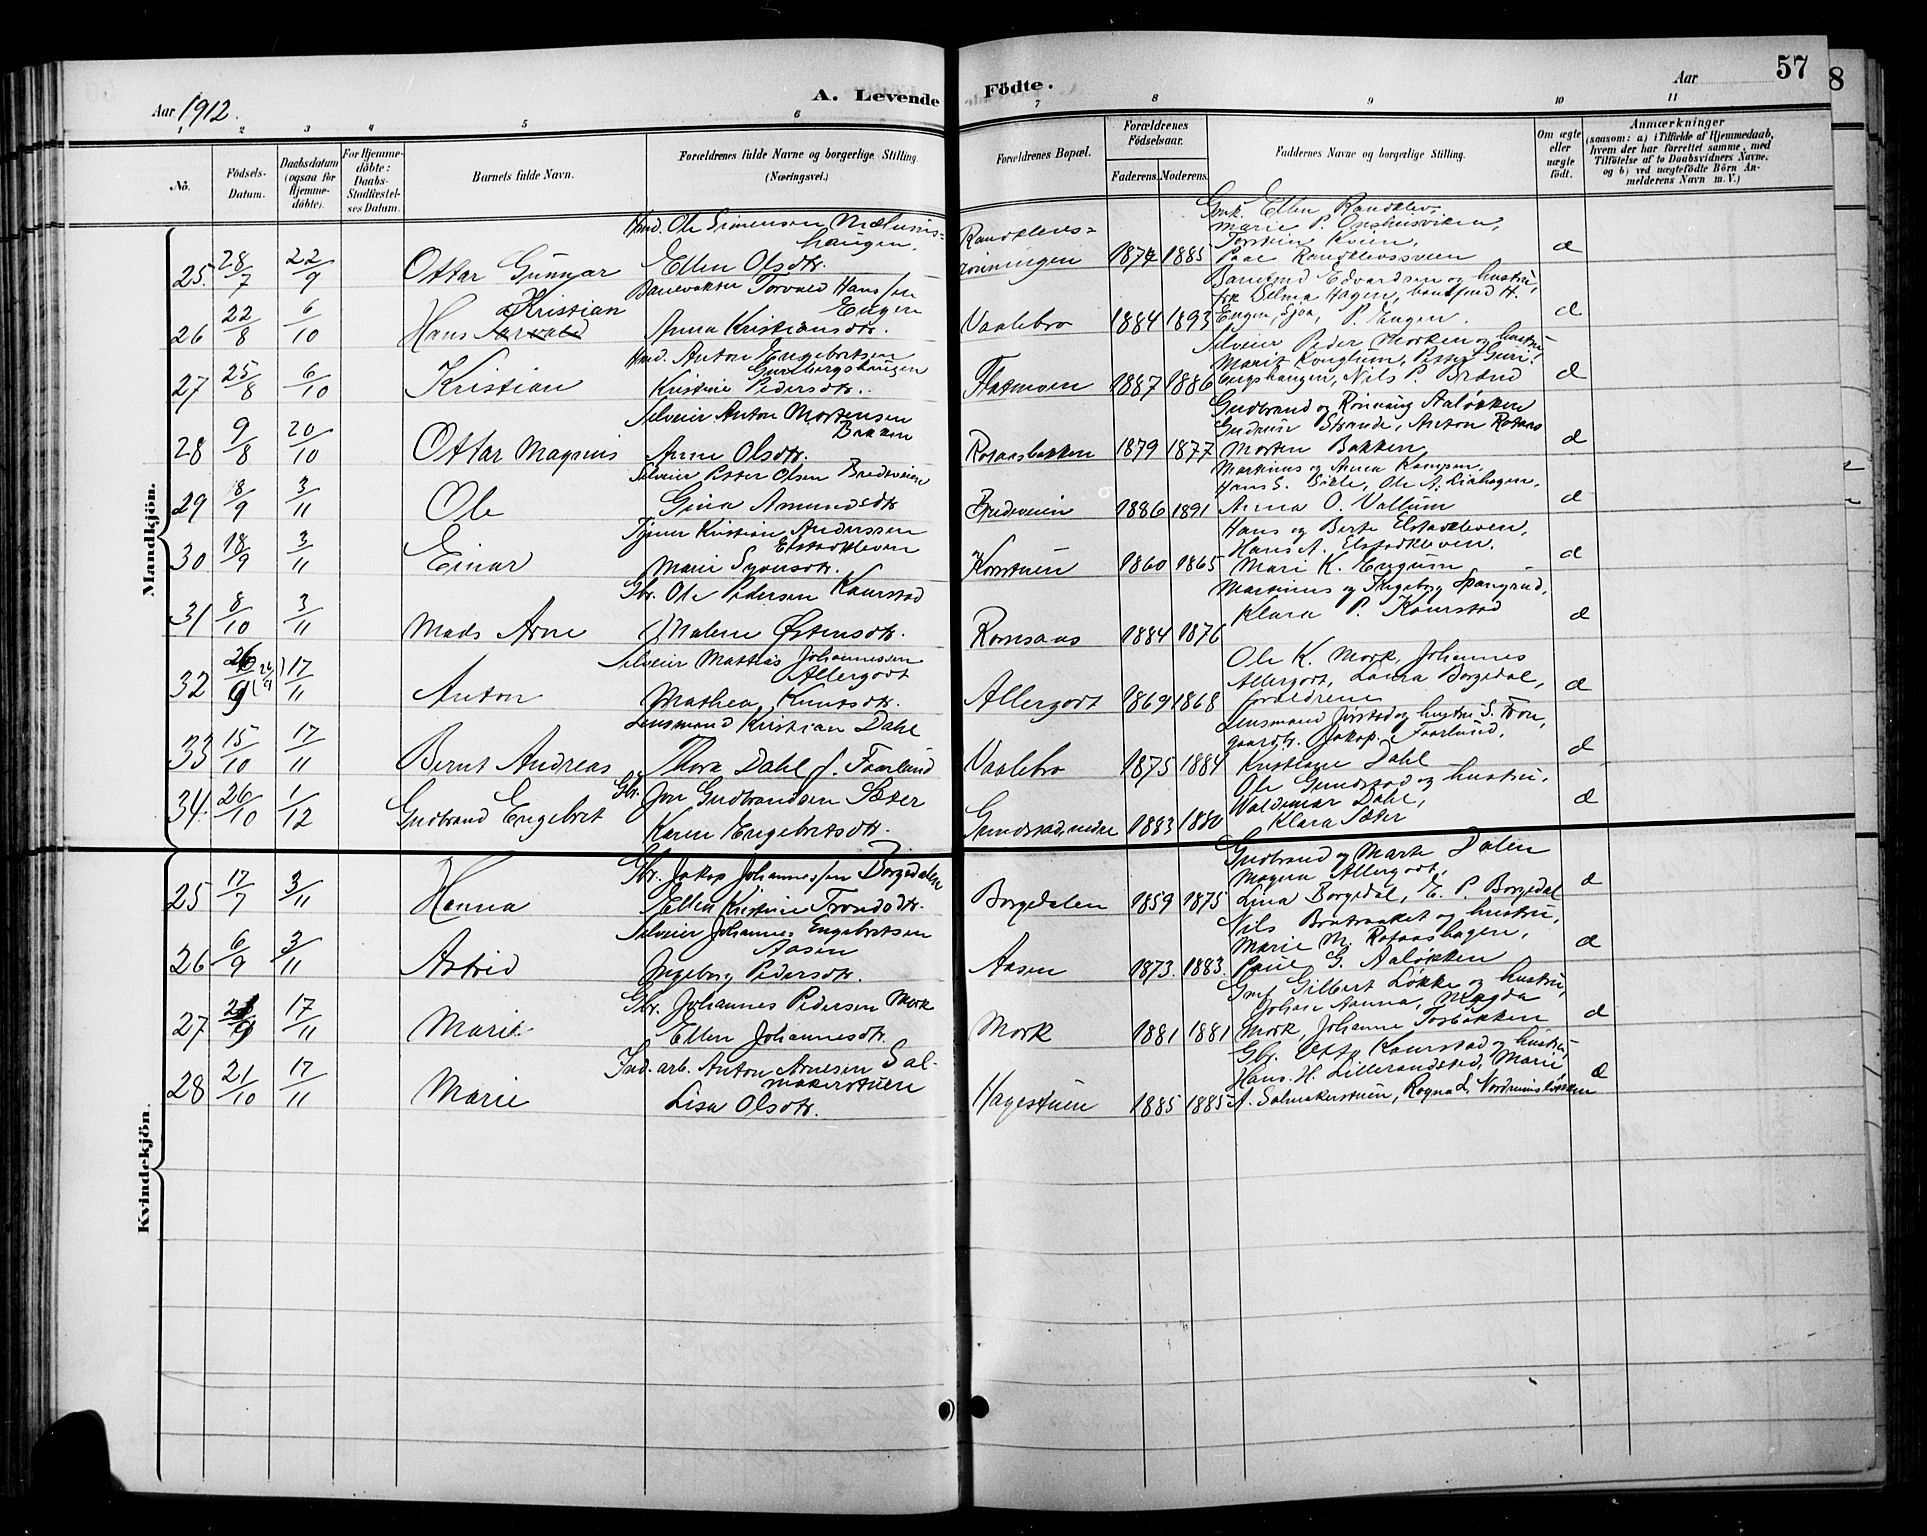 57
Aar 1912.
A. Levende Födte.
Aar
1 2 3 4 5 6 7 8 9 10 11
No.
Födsels-Datum.
Daabsdatum (ogsaa for Hjemme-döbte).
For Hjemme-döbte: Daabs-Stadfæstel-ses Datum.
Barnets fulde Navn.
Forældrenes fulde Navne og borgerlige Stilling. (Næringsvei.)
Forældrenes Bopæl.
Forældrenes Födselsaar.
Faderens. Moderens.
Faddernes Navne og borgerlige Stilling.
Om ægte eller uægte födt.
Anmærkninger
(saasom: a) i Tilfælde af Hjemmedaab, hvem der har forrettet samme, med Tilföielse af to Daabsvidners Navne, og b) ved uægtefödte Börn An-melderens Navn m. V.)
Mandkjön.
25. 28/7 22/9 Ottar Gunnar
Ole Simensen Mælums-
haugen.
Ellen Olsdtr.
Randklevs-
rönningen 1874 1885
Ellen Randklev,
Marie P.
Torstein Kvien,
Paal Randklevssveen
d
26 22/8 6/10 Hans Kristian
Banevokter Torvald Hanssen
Engen
Anna Kristiansdtr.
Vaalebro 1884 1893
Banefmd Edvardsen og hustru,
frk Selma Hagen, banefmd H.
Engen, Sjoa, P. Engen.
d
27 25/8 6/10 Kristian
Anton Engebretsen
Kristine Pedersdtr.
Flatmoen 1887 1886
Selveier Peder Morken og hustru
Marit Konglum, Petter Guri-
bergshaugen, Nils P. Brænd
d
28 9/8 20/10 Ottar Magnus
Selveier Anton Mortensen
Bakken
Anne Olsdtr.
Rotaasbakken 1879 1877
Gudbrand og Rönnaug Aalökken
Gudrun Strande, Anton Rotaas
Morten Bakken
d
29 8/9 3/11 Ole
Selveier Petter Olsen Bredeveien
Gina Amundsdtr
Bredeveien 1886 1891
Martinus og Anna Kampen,
Hans S. Ole A. Liahagen,
Anna O. Vollum
d
30 18/9 3/11 Einar
Kristian Anderssen
Elstadkleven
Marie Syversdtr.
1860 1865
Hans og Berte Elstadkleven,
Hans A. Elstadkleven.
Mari K. Engum
d
31 8/10 3/11 Mads Arne
Gbr. Ole Pedersen Kaurstad
Malene Østensdtr.
Romsaas 1884 1876
Martinus og Ingeborg Spangrud,
Klara P. Kaurstad
d
32 26/9 (26/9) 17/11 Anton
Selveier Mattias Johannessen
Allergodt
Mathea Knutsdtr.
Allergodt 1869 1868
Ole K. Mork, Johannes
Allergodt, Laura Borgedal,
foreldrene
d
33 15/10 17/11 Bernt Andreas
Lensmand Kristian Dahl
Thora Dahl f. Faarlund
Vaalebro 1875 1884
Lensmand Jörstad og hustru S. Tron,
gaardbr. Jakop. Faarlund,
Kristiane Dahl
d
34. 26/10 1/12 Gudbrand Engebret
Gbr. Jon Gudbrandsen Sæter
Karen Engebretsdtr.
Gundstad, nedre 1883 1880
Ole Gundstad og hustru,
Valdemar Dahl,
Klara Sæter
d
Kvindekjön.
25 17/7 3/11 Hanna
Gbr. Jakop Johannessen Borgedalen
Ellen Kristine Trondsdtr.
Borgedalen 1859 1875
Gudbrand og Marte Dalen
Magna Allergodt,
Lina Borgedal, E. P. Borgedal
d
26 6/9 3/11 Astrid
Selveier Johannes Engebretsen
Aasen
Ingeborg Pedersdtr.
Aasen 1873. 1883.
Nils Bratbakket og hustru,
Marie M. Rotaashagen,
Paul G. Aalökken
d
27 /9 17/11 Marie
Gbr. Johannes Pedersen Mork
Ellen Johannesdtr.
Mork 1881 1881
Gilbert Løkke og hustru,
Johan Aanna, Magda
Mork, Johanne Torbakken
d
28 21/10 17/11 Marie
Ind. arb. Anton Arnesen Sal-
makerstuen
Lisa Olsdtr.
Hagestuen 1885 1885
Gbr. Otto Kaurstad og hustru,
Hans. H. Lillerandstad, Marie
A. Salmakerstuen, Ragna L. Nordrumsløkken
d